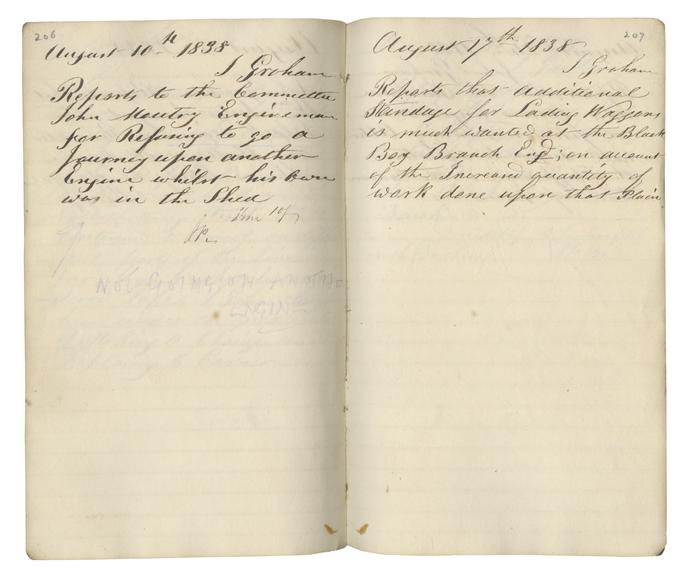 206
August 10th 1838
J Graham
Reports to the Committee
John Moutry Engineman
for Refusing to go a
Journey upon another
Engine whilst his own
was in the Shed
Fine 10/
NOT GOING ON ANOTHER
ENGINE
207
August 17th 1838
J Graham
Reports that additional
Standage for Lading Waggons
is much wanted at the Black
Boy Branch End; on account
of the Increasd quantity of
work done upon that Plain